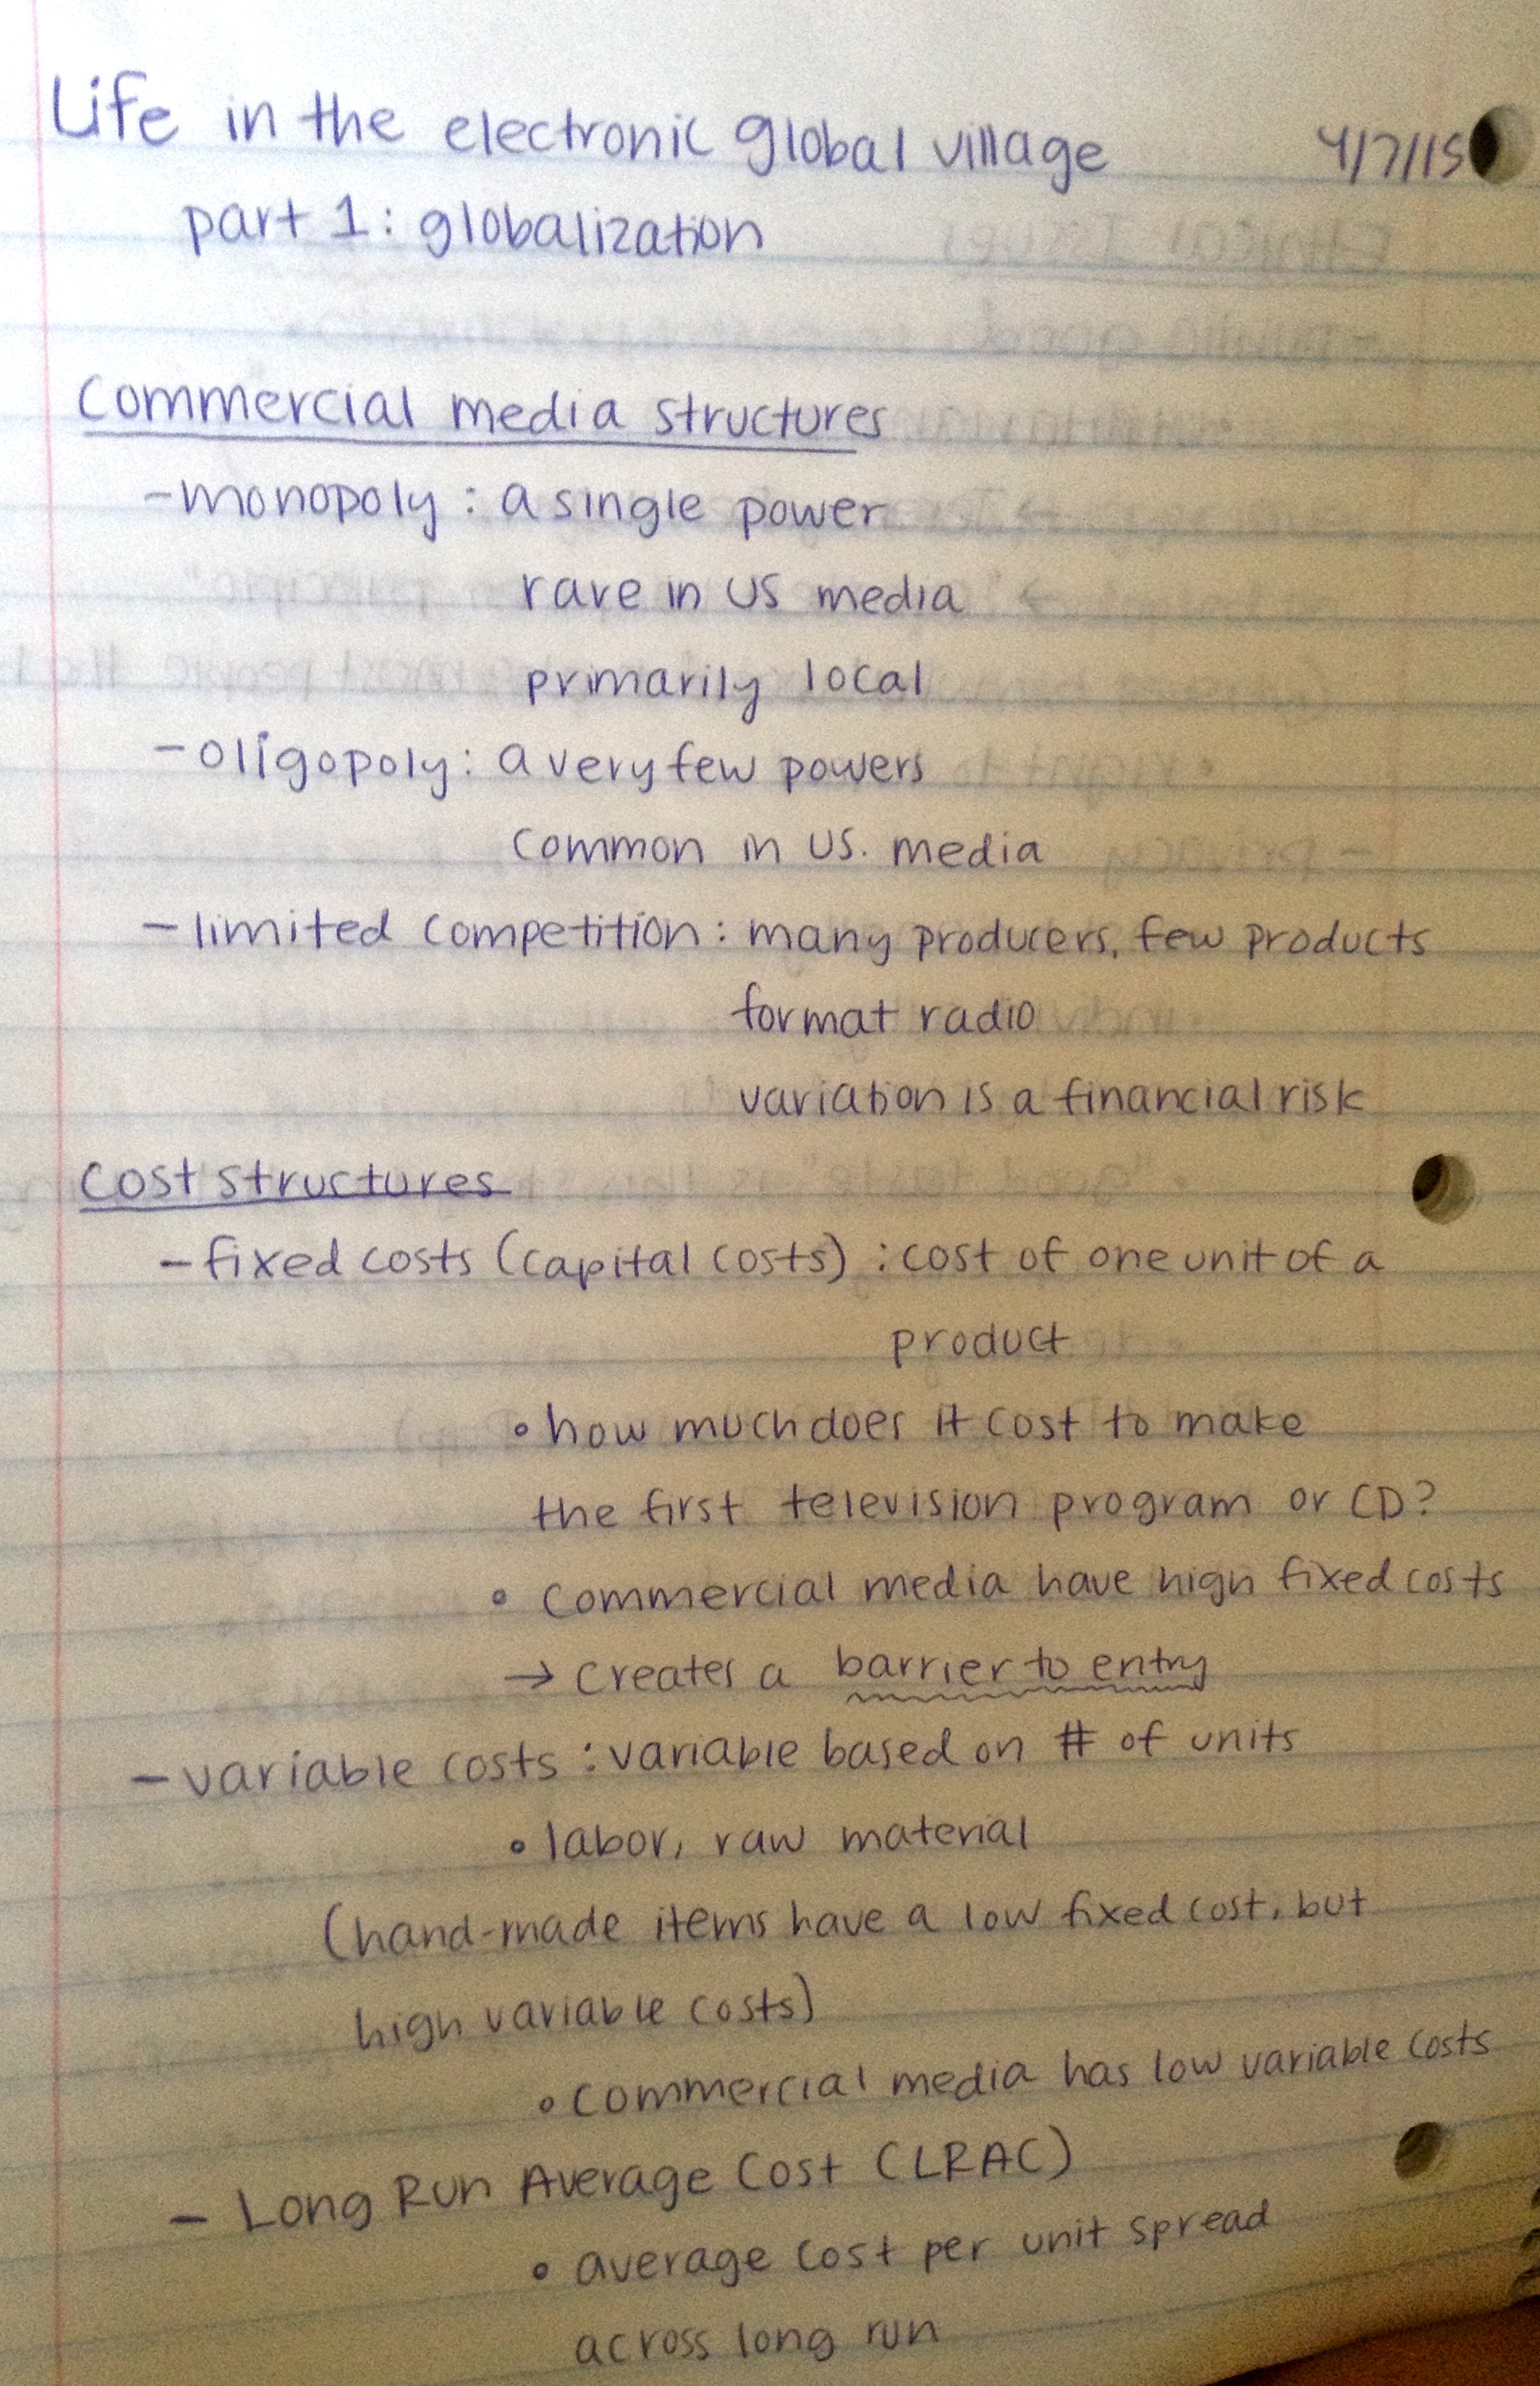 Life in the electronic global village 4/7/15
part 1: globalization
Commercial media structures
- monopoly: a single power
rare in US media
primarily local
- oligopoly: a very few powers
common in US. media
- limited competition: many producers, few products
format radio
variation is a financial risk
Cost structures
- fixed costs (capital costs): cost of one unit of a
product
• how much does it cost to make
the first television program or CD?
• commercial media have high fixed costs
→ creates a barrier to entry
- variable costs: variable based on # of units
• labor, raw material
(hand-made items have a low fixed cost, but
high variable costs)
• commercial media has low variable costs
- Long Run Average Cost (LRAC)
• average cost per unit spread
across long run